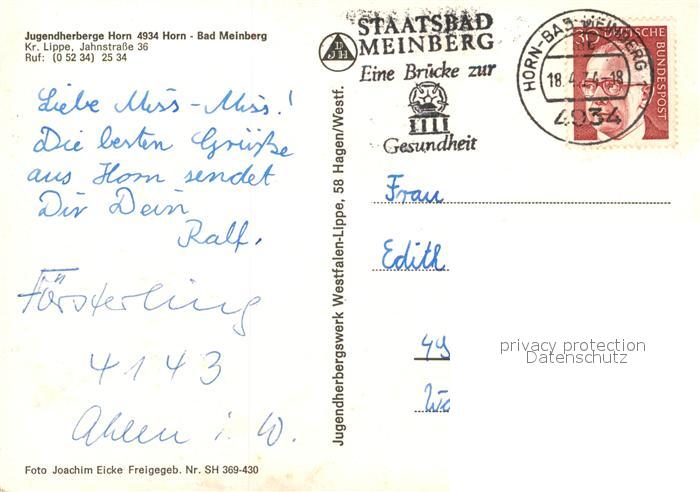 Jugendherberge Horn 4934 Horn - Bad Meinberg
Kr. Lippe, Jahnstraße 36
Ruf: (0 52 34) 25 34
Liebe Miss-Miss!
Die besten Grüße
aus Horn sendet
Dir Dein
Ralf.
Försterling
4143
Ahlen i. W.
Foto Joachim Eicke Freigegeb. Nr. SH 369-430
Jugendherbergswerk Westfalen-Lippe, 58 Hagen/Westf.
DJH
STAATSBAD
MEINBERG
Eine Brücke zur
Gesundheit
HORN-BAD MEINBERG 1
18.4.74-18
4934
30
DEUTSCHE
BUNDESPOST
Frau
Edith
49
privacy protection
Datenschutz